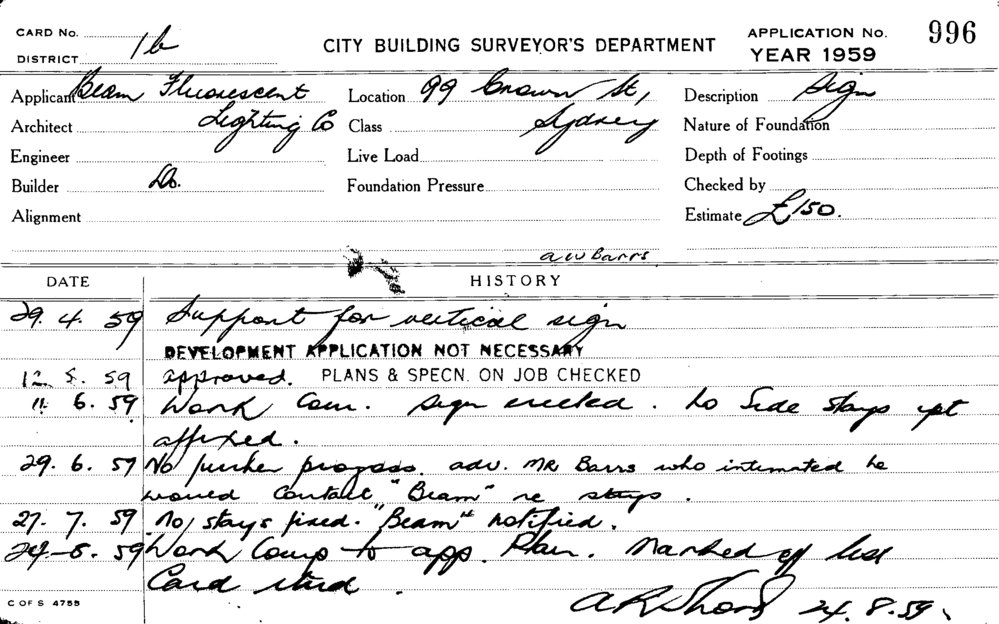 CARD No.
DISTRICT 1b
CITY BUILDING SURVEYOR'S DEPARTMENT
APPLICATION No. 996
YEAR 1959
Applicant Beam Fluorescent
Lighting Co
Architect
Engineer
Builder Do.
Alignment
Location 99 Crown St,
Sydney
Class
Live Load
Foundation Pressure
Description Sign
Nature of Foundation
Depth of Footings
Checked by
Estimate £150.
A W Barrs
DATE HISTORY
29. 4. 59 Support for vertical sign
DEVELOPMENT APPLICATION NOT NECESSARY
12. 5. 59 approved. PLANS & SPECN. ON JOB CHECKED
11. 6. 59 Work Com. Sign erected. No Side stays yet
affixed.
29. 6. 59 No further progress. adv. MR Barrs who intimated he
would contact "Beam" re stays.
27. 7. 59 No stays fixed. "Beam" notified.
24-8. 59 Work Comp to app. Plan. Marked off
Card
24. 8. 59
C OF S 4755